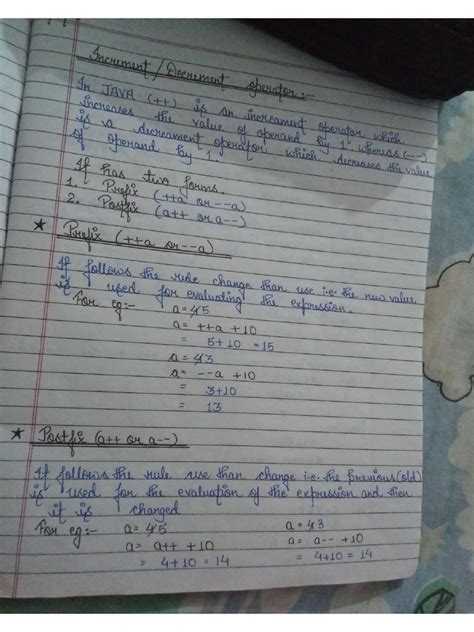 Increment / Decrement operator :-
In JAVA (++) is an increament operator which
increases the value of operand by 1 wheruss (--)
is a decrament operator, which decreases the value
of operand by 1.
If has two forms.
1. Prefix (++a or --a)
2. Postfix (a++ or a--)
★ Prefix (++a or --a)
If follows the rule change than use i.e. the new value
is used for evaluating the expression.
For eg:- a = 4 5
a = ++a + 10
= 5+10 = 15
a = 4 3
a = --a + 10
= 3+10
= 13
★ Postfix (a++ or a--)
If follows the rule use than change i.e. the previous (old)
is used for the evaluation of the expression and then
it is changed.
For eg:- a = 4 5 a = 4 3
a = a++ + 10 a = a-- + 10
= 4+10 = 14 = 4+10 = 14